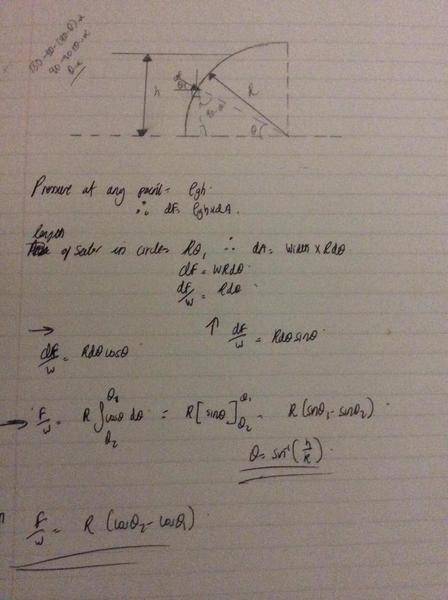 h
R
θ
Pressure at any point = ρgh.
∴ dF = ρgh x dA.
length
of sector in circle = Rθ, ∴ dA = width x Rdθ
dF = WRdθ
dF/w = Rdθ
→ ↑ dF/w = Rdθ sinθ
dF/w = Rdθ cosθ
→ F/w = R ∫ cosθ dθ = R [sinθ] = R (sinθ₁ - sinθ₂)
θ = sin⁻¹ (h/R)
F/w = R (cosθ₂ - cosθ₁)